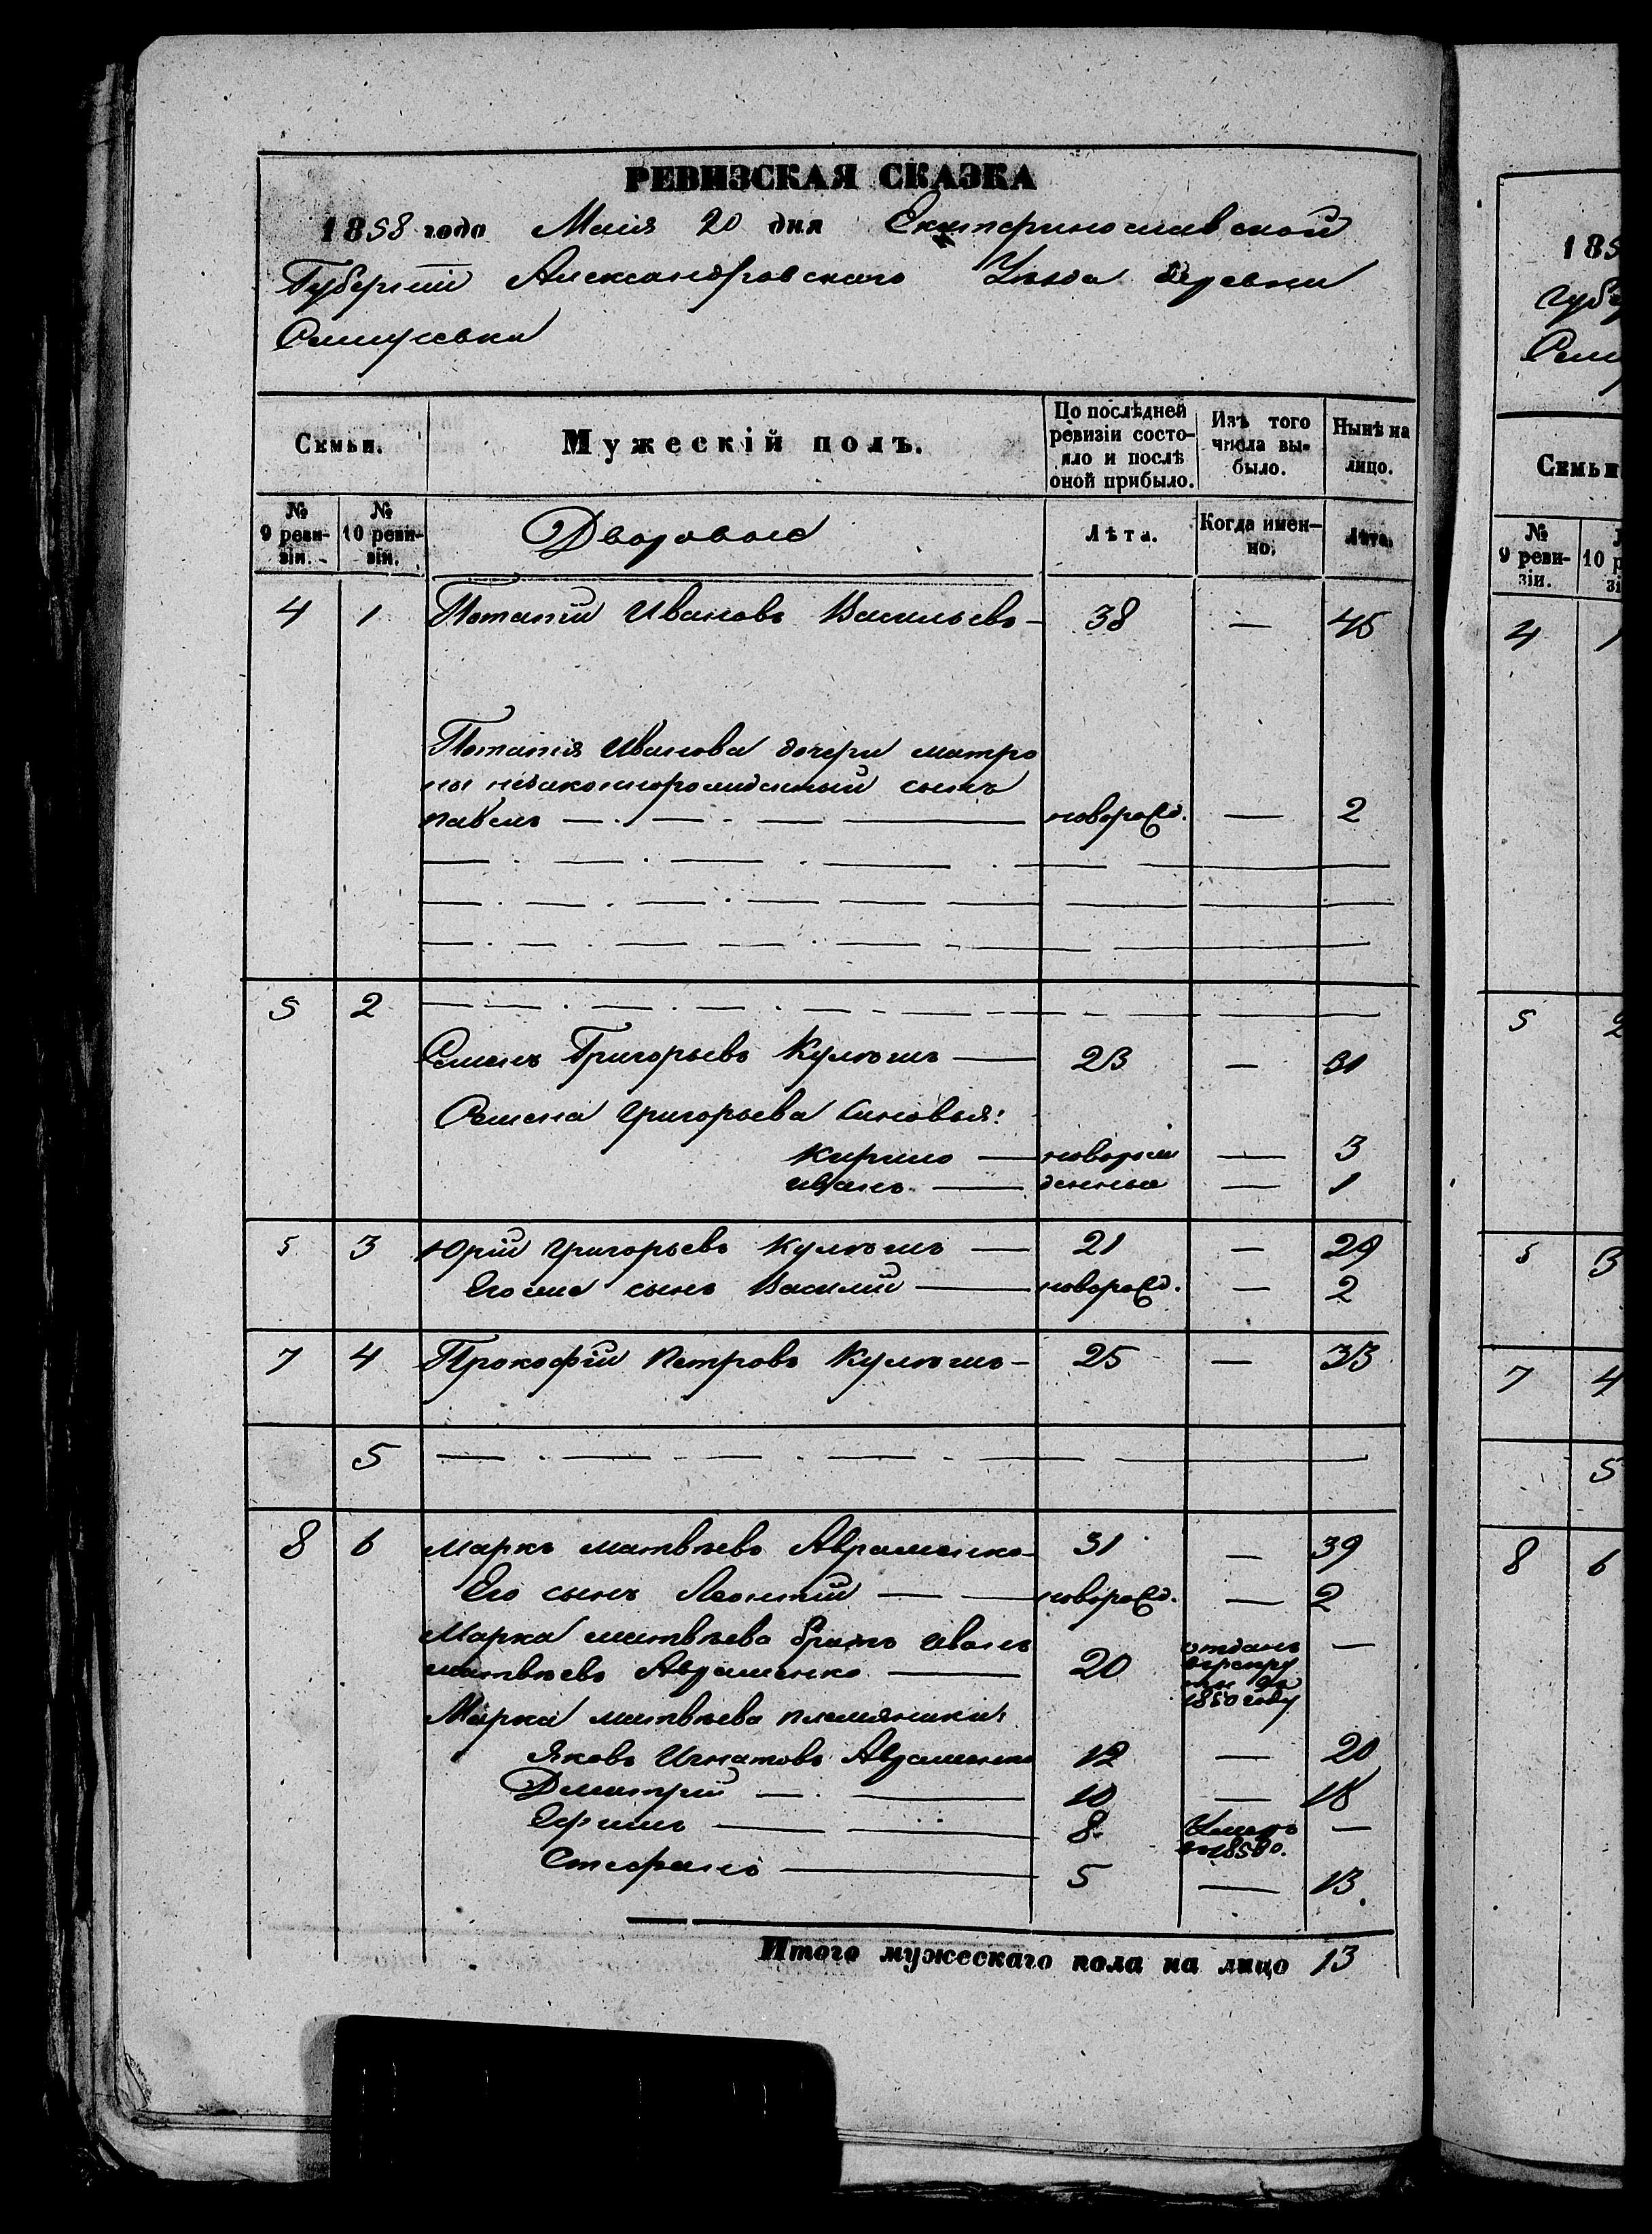 РЕВИЗСКАЯ СКАЗКА
1858 года Маія 20 дня Екатеринославской
Губерніи Александровскаго Уѣзда деревни
Семьи.
Мужескій полъ.
По послѣдней ревизіи состояло и послѣ оной прибыло.
Изъ того числа выбыло.
Нынѣ на лицо.
№ 9 ревизіи.
№ 10 ревизіи.
Дворовые
Лѣта.
Когда именно.
Лѣта.
4 1 Потапій Ивановъ Васильевъ - 38 — 45
Потапія Иванова дочери матро
ны незаконнорожденный сынъ
павелъ — новорожд. — 2
5 2
Семенъ Григорьевъ Кулюшъ — 23 — 31
Семена Григорьева Синовья:
Кирило — новорож — 3
иванъ — денные — 1
5 3 Юрій Григорьевъ Кулюшъ — 21 — 29
Его же сынъ Василій — новорожд. — 2
7 4 Прокофій Петровъ Кулюшъ - 25 — 33
5
8 6 Маркъ матвѣевъ Авраменко - 31 — 39
Его сынъ Леонтій — новорожд. — 2
Марка матвѣева братъ иванъ
матвѣевъ Авраменко — 20 отданъ в рекруты въ 1850 году —
Марка матвѣева племянники:
Яковъ Игнатовъ Авраменко 12 — 20
Дмитрій — 10 — 18
Ефимъ — 8 Умеръ въ 1850 г. —
Стефанъ — 5 — 13.
Итого мужескаго пола на лицо 13
185
губе
Семьи
№ 9 ревизіи.
10 р
4 1
5 2
5 3
7 4
5
8 6